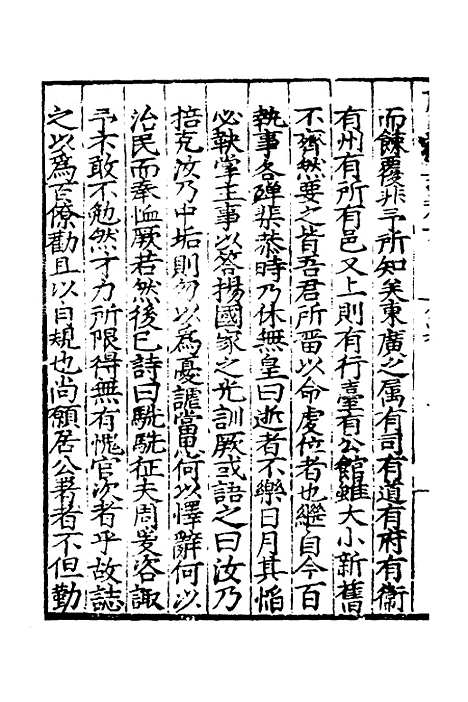 而餗覆非予所知矣東廣之属有司有道有府有衛
有州有所有邑又上則有行臺有公館雖大小新舊
不齊然要之皆吾君所畱以命虔位者也繼自今百
執事各殫渠恭時乃休無皇曰逝者不樂日月其慆
必執掌主事以答揚國家之光訓厥或語之曰汝乃
掊克汝乃中垢則勿以為憂讟當思何以懌辭何以
治民而奉血厥若然後已詩曰駪駪征夫周爰咨諏
予不敢不勉然才力所限得無有愧官次者乎故誌
之以為百僚勸且以自規也尚願居公署者不但勤